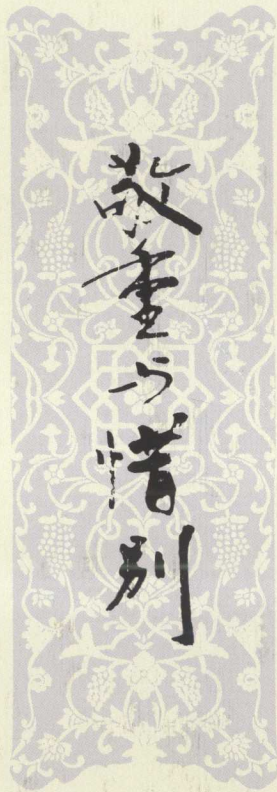 敬重与惜别